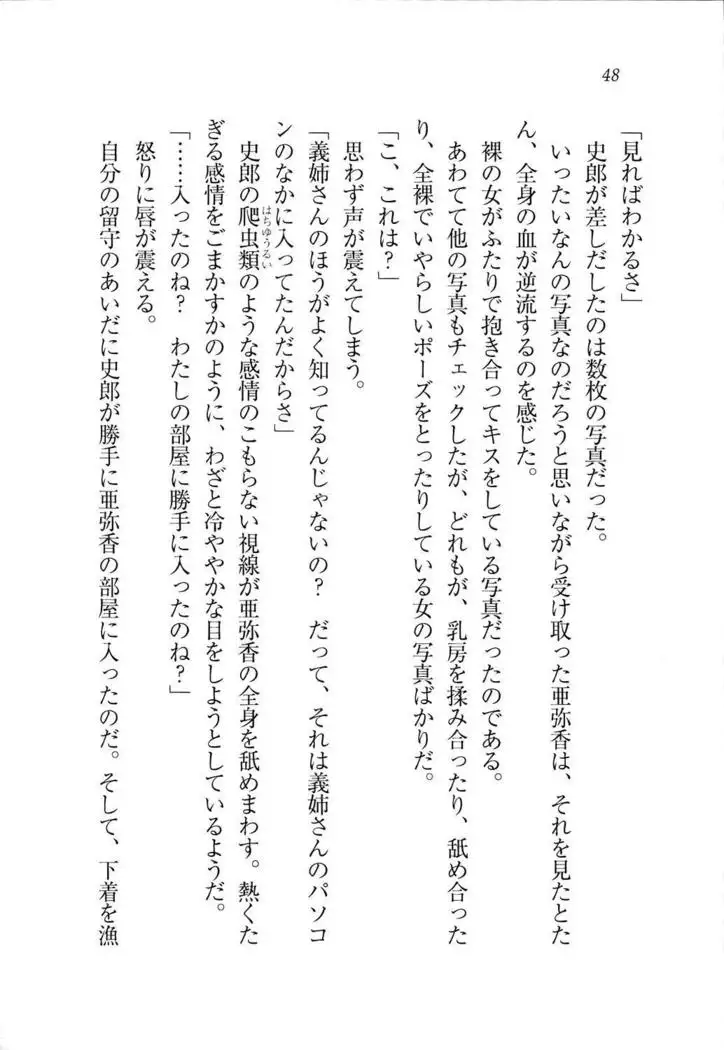 48
「見ればわかるさ」
史郎が差しだしたのは数枚の写真だった。
いったいなんの写真なのだろうと思いながら受け取った亜弥香は、それを見たとた
ん、全身の血が逆流するのを感じた。
裸の女がふたりで抱き合ってキスをしている写真だったのである。
あわてて他の写真もチェックしたが、どれもが、乳房を揉み合ったり、舐め合った
り、全裸でいやらしいポーズをとったりしている女の写真ばかりだ。
「こ、これは?」
思わず声が震えてしまう。
「義姉さんのほうがよく知ってるんじゃないの? だって、それは義姉さんのパソコ
ンのなかに入ってたんだからさ」
史郎の爬虫類のような感情のこもらない視線が亜弥香の全身を舐めまわす。熱くた
はちゅうるい
ぎる感情をごまかすかのように、わざと冷ややかな目をしようとしているようだ。
「……入ったのね? わたしの部屋に勝手に入ったのね?」
怒りに唇が震える。
自分の留守のあいだに史郎が勝手に亜弥香の部屋に入ったのだ。そして、下着を漁